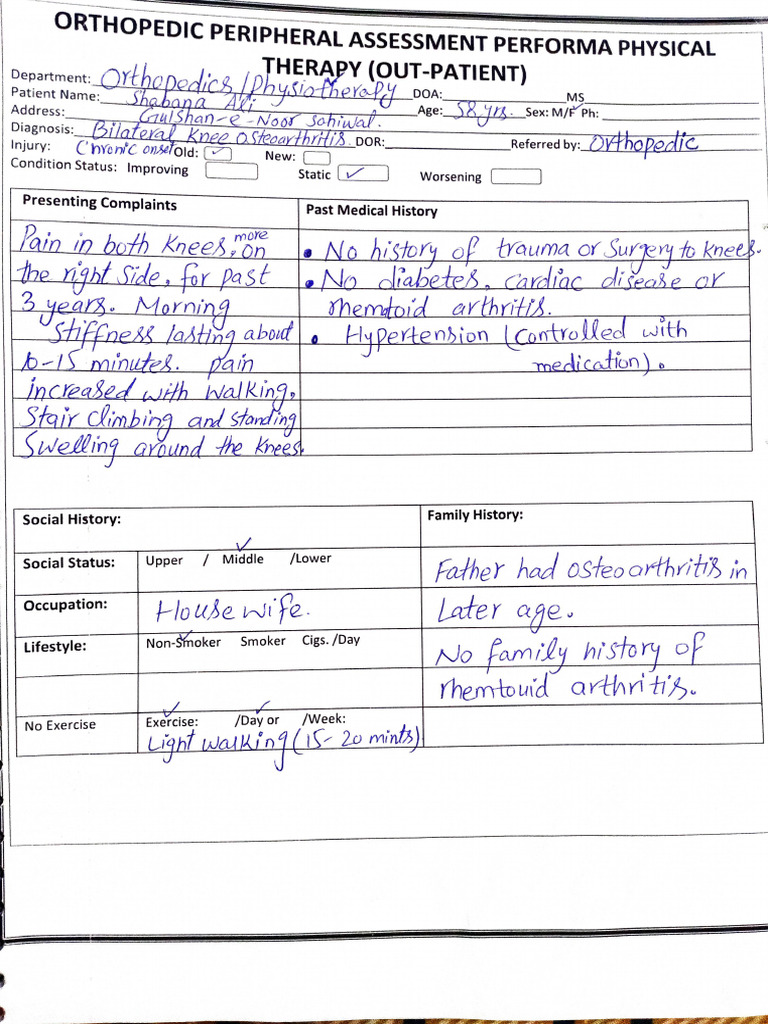 ORTHOPEDIC PERIPHERAL ASSESSMENT PERFORMA PHYSICAL
THERAPY (OUT-PATIENT)
Department: Orthopedics/Physiotherapy DOA: MS
Patient Name: Shabana Ali Age: 58 yrs. Sex: M/F Ph:
Address: Gulshan-e-Noor Sahiwal.
Diagnosis: Bilateral Knee osteoarthritis. DOR: Referred by: Orthopedic
Injury: Chronic onset Old: ✓ New:
Condition Status: Improving Static ✓ Worsening
Presenting Complaints
Pain in both Knees, more on
the right side, for past
3 years. Morning
stiffness lasting about
10-15 minutes. pain
increased with walking,
Stair climbing and standing
Swelling around the knees.
Past Medical History
• No history of trauma or Surgery to knees.
• No diabetes, cardiac disease or
rhemtoid arthritis.
• Hypertension (controlled with
medication).
Social History:
Social Status: Upper / Middle ✓ /Lower
Occupation: House wife.
Lifestyle: Non-Smoker ✓ Smoker Cigs. /Day
No Exercise Exercise: ✓ /Day or ✓ /Week:
Light walking (15-20 mints)
Family History:
Father had osteoarthritis in
Later age.
No family history of
rhemtouid arthritis.